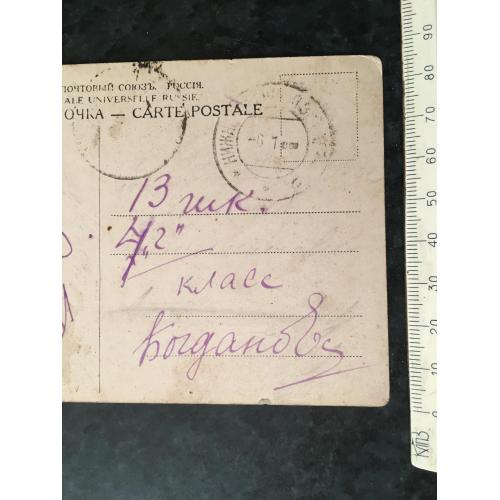 ПОЧТОВЫЙ СОЮЗЪ. РОССІЯ.
ALE UNIVERSELLE RUSSIE.
ОЧКА — CARTE POSTALE
НИЖ
13 шк.
4 „г"
класс
Богданов
90
80
70
60
50
40
30
20
10
0